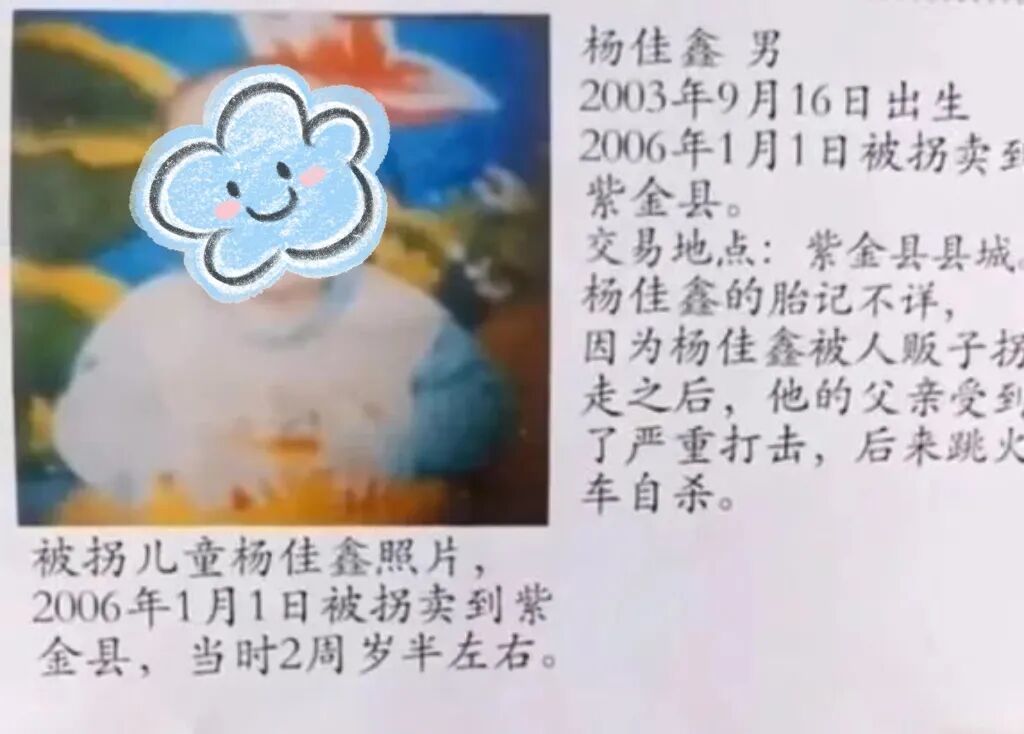 杨佳鑫 男
2003年9月16日出生
2006年1月1日被拐卖到
紫金县。
交易地点：紫金县县城。
杨佳鑫的胎记不详，
因为杨佳鑫被人贩子拐
走之后，他的父亲受到
了严重打击，后来跳火
车自杀。
被拐儿童杨佳鑫照片，
2006年1月1日被拐卖到紫
金县，当时2周岁半左右。